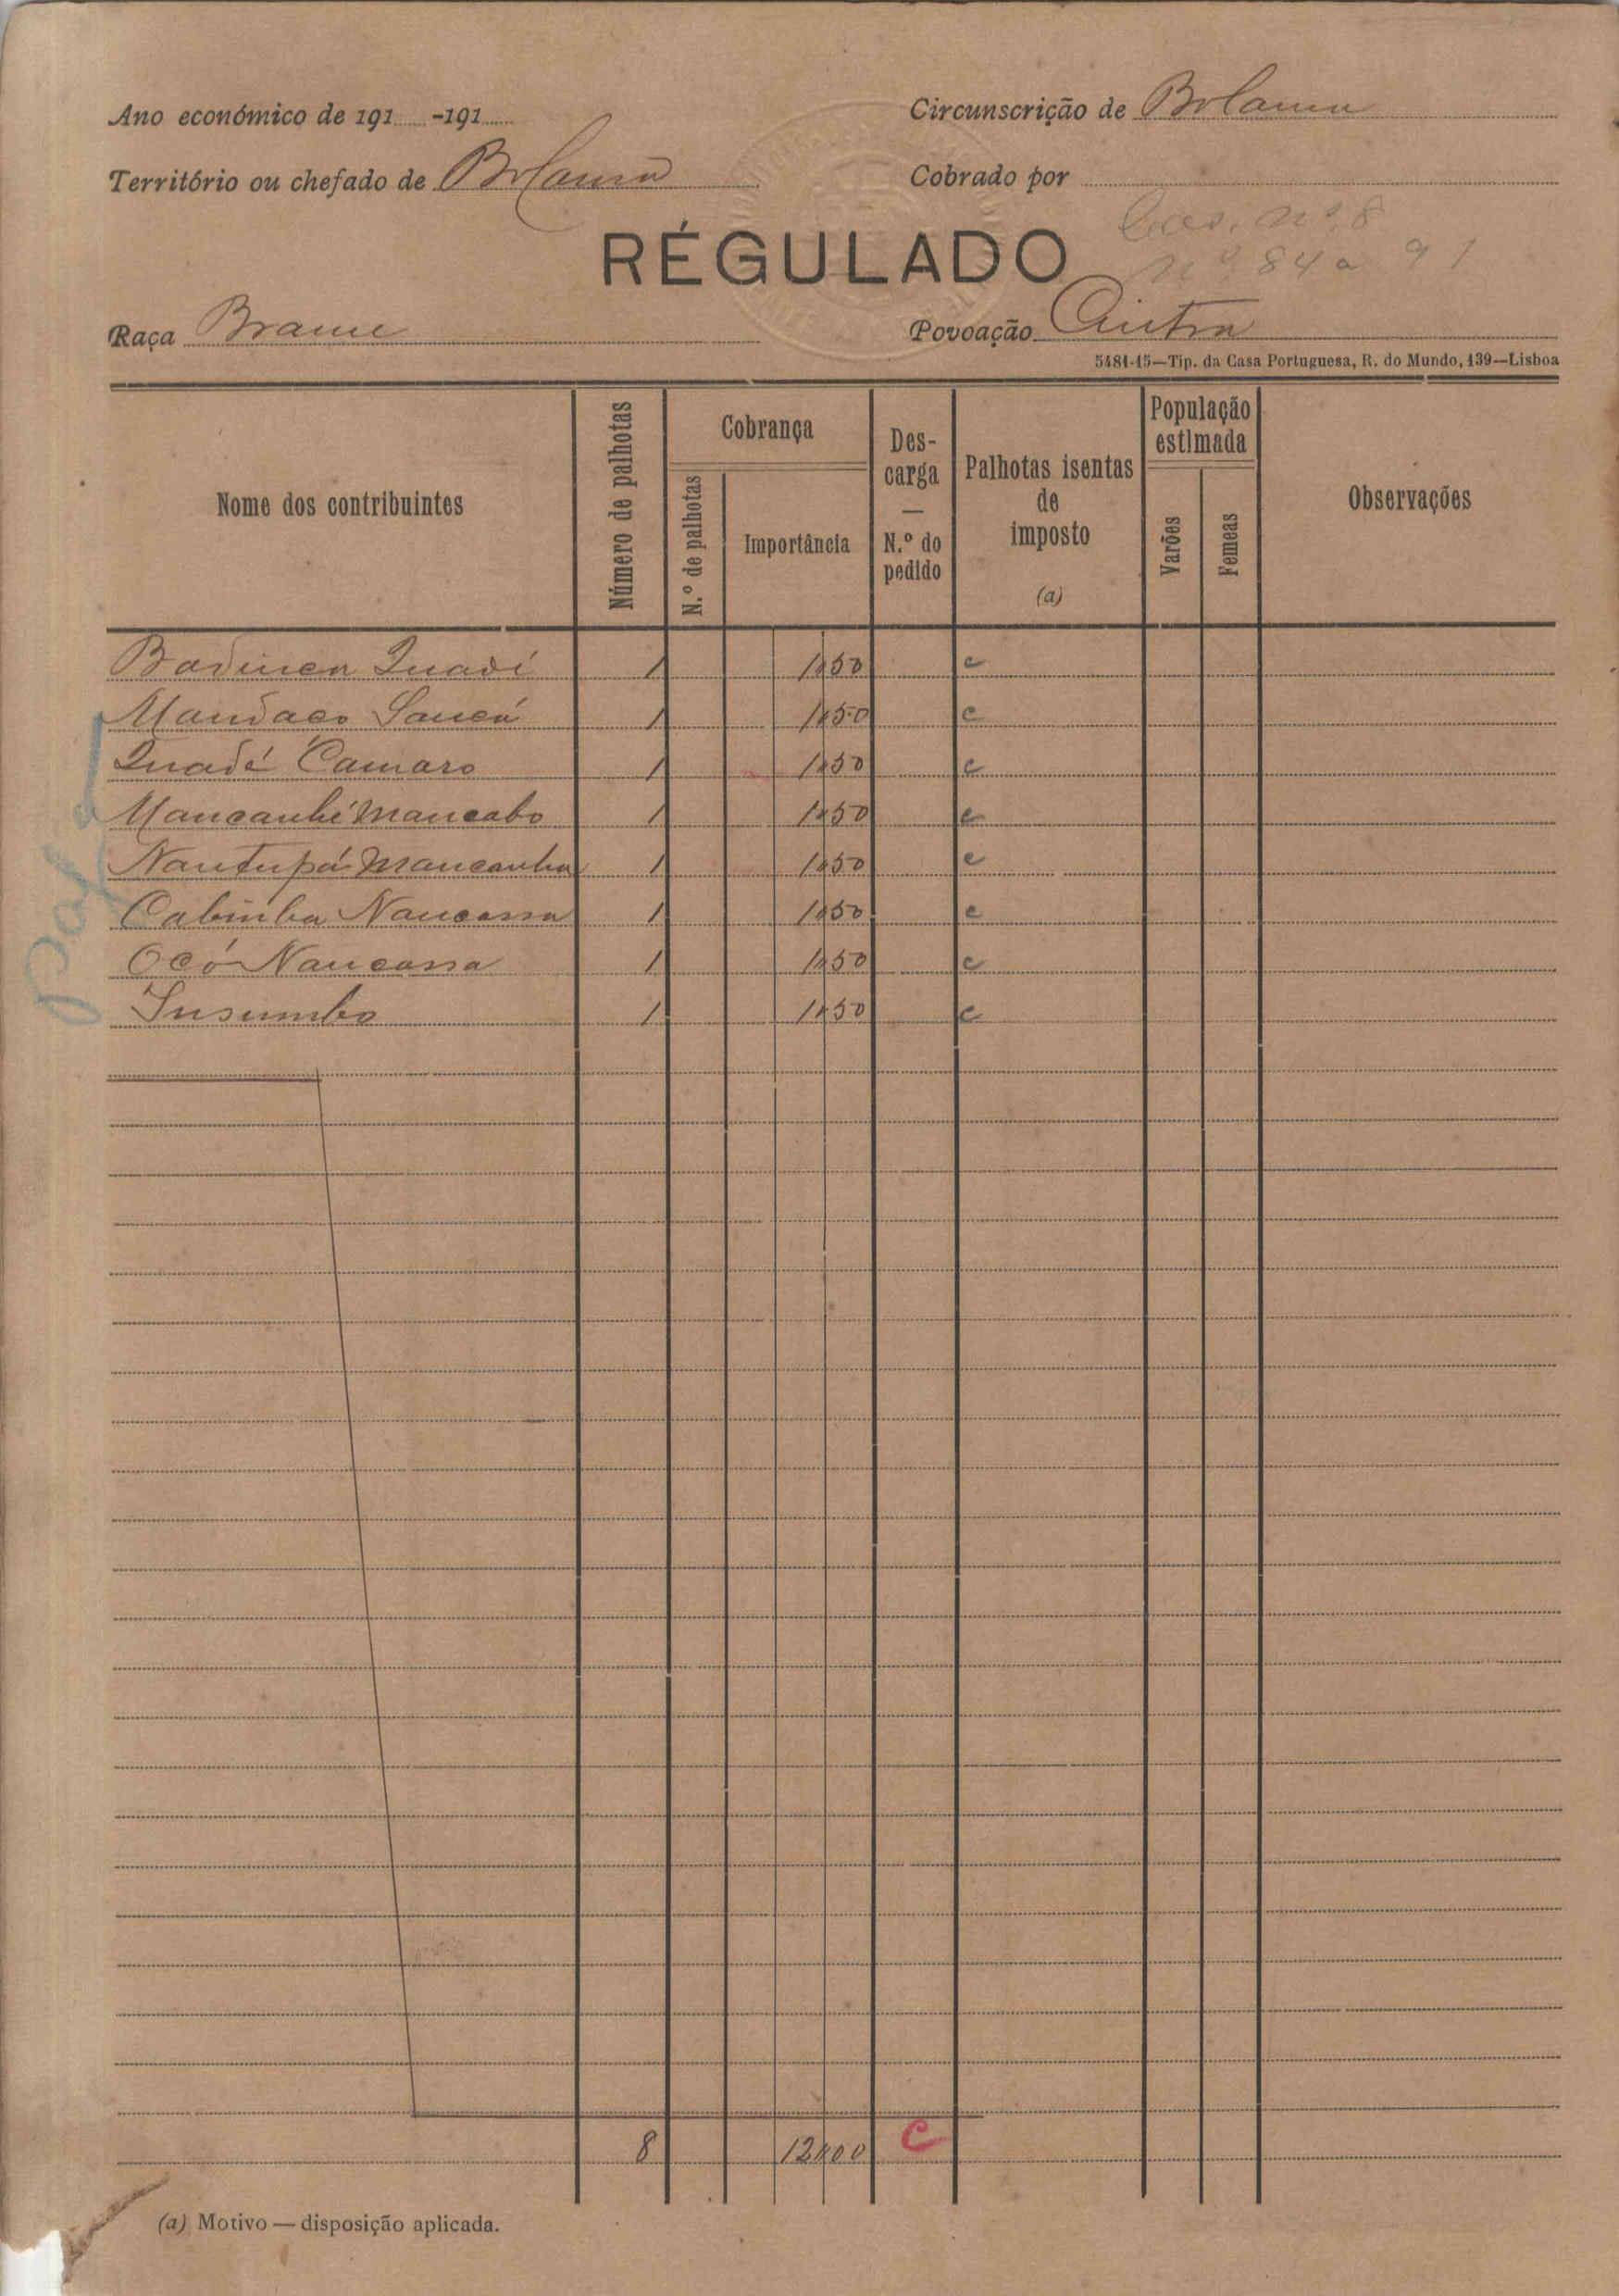 Ano económico de 191 -191
Circunscrição de Bolama
Território ou chefado de Bolama
Cobrado por
Cad. nº 8
nº 84 a 91
RÉGULADO
Raça Brame
Povoação Cintra
5481-15—Tip. da Casa Portuguesa, R. do Mundo, 139—Lisboa
Nome dos contribuintes
Número de palhotas
Cobrança
N.º de palhotas
Importância
Descarga — N.º do pedido
Palhotas isentas de imposto (a)
População estimada
Varões
Femeas
Observações
Quadí 1 1$50 c
Mandaco Sancá 1 1$50 c
Quadé Camaro 1 1$50 c
Mancanhé Mancabo 1 1$50 c
Nantupá Mancanha 1 1$50 c
Cabinha Nancassa 1 1$50 c
Ocó Nancassa 1 1$50 c
Insumbo 1 1$50 c
8 12$00 C
(a) Motivo — disposição aplicada.